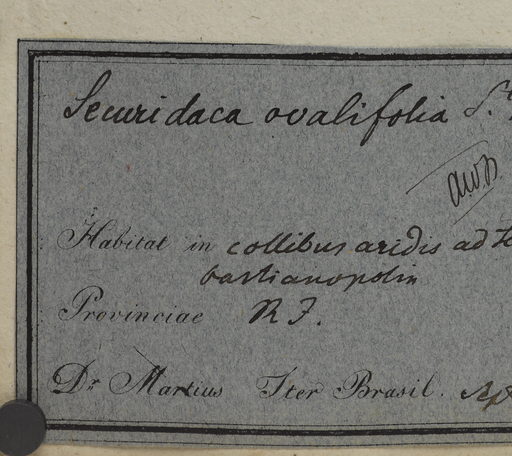 Securidaca ovalifolia St.
a.w.B.
Habitat in collibus aridis ad
bastianopolin
Provinciae R J.
Dr Martius Iter Brasil.